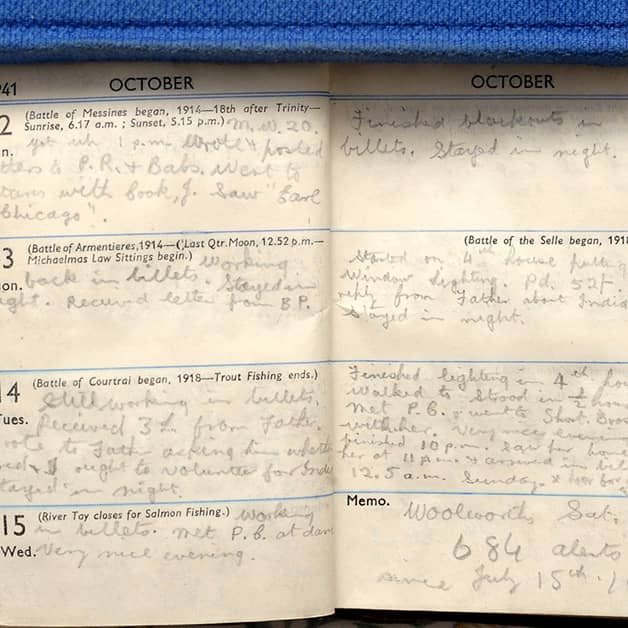 941 OCTOBER
2 (Battle of Messines began, 1914—18th after Trinity—
Sunrise, 6.17 a.m. ; Sunset, 5.15 p.m.) M.W. 20.
n. 1 p.m. Wrote & posted
to P.R. & Babs. Went to
with Cook, J. Saw "Earl
Chicago".
3 (Battle of Armentieres, 1914—(Last Qtr. Moon, 12.52 p.m.—
Michaelmas Law Sittings begin.) Working
on. back in billets. Stayed in
ght. Received letter from B.P.
14 (Battle of Courtrai began, 1918—Trout Fishing ends.)
Still working in billets.
Tues. Received from Father.
rote to Fath asking him whether
I ought to volunteer for Indi
tayed in night.
15 (River Tay closes for Salmon Fishing.) Working
in billets. Met P.B. at dan
Wed. Very nice evening.
OCTOBER
Finished blackouts in
billets. Stayed in night.
(Battle of the Selle began, 1918
Started on 4th house putting
Window lighting. Pd. 52/-
reply from Father about India
Stayed in night.
Finished lighting in 4th hou
Walked to Strood in ½ hour
Met P.B. & went to Short. Bros
with her. Very nice evening
finished 10 p.m. Saw her home
her at 11 p.m. & arrived in bil
12.5 a.m. Sunday.
Memo. Woolworths Sat.
684 alerts
since July 15th